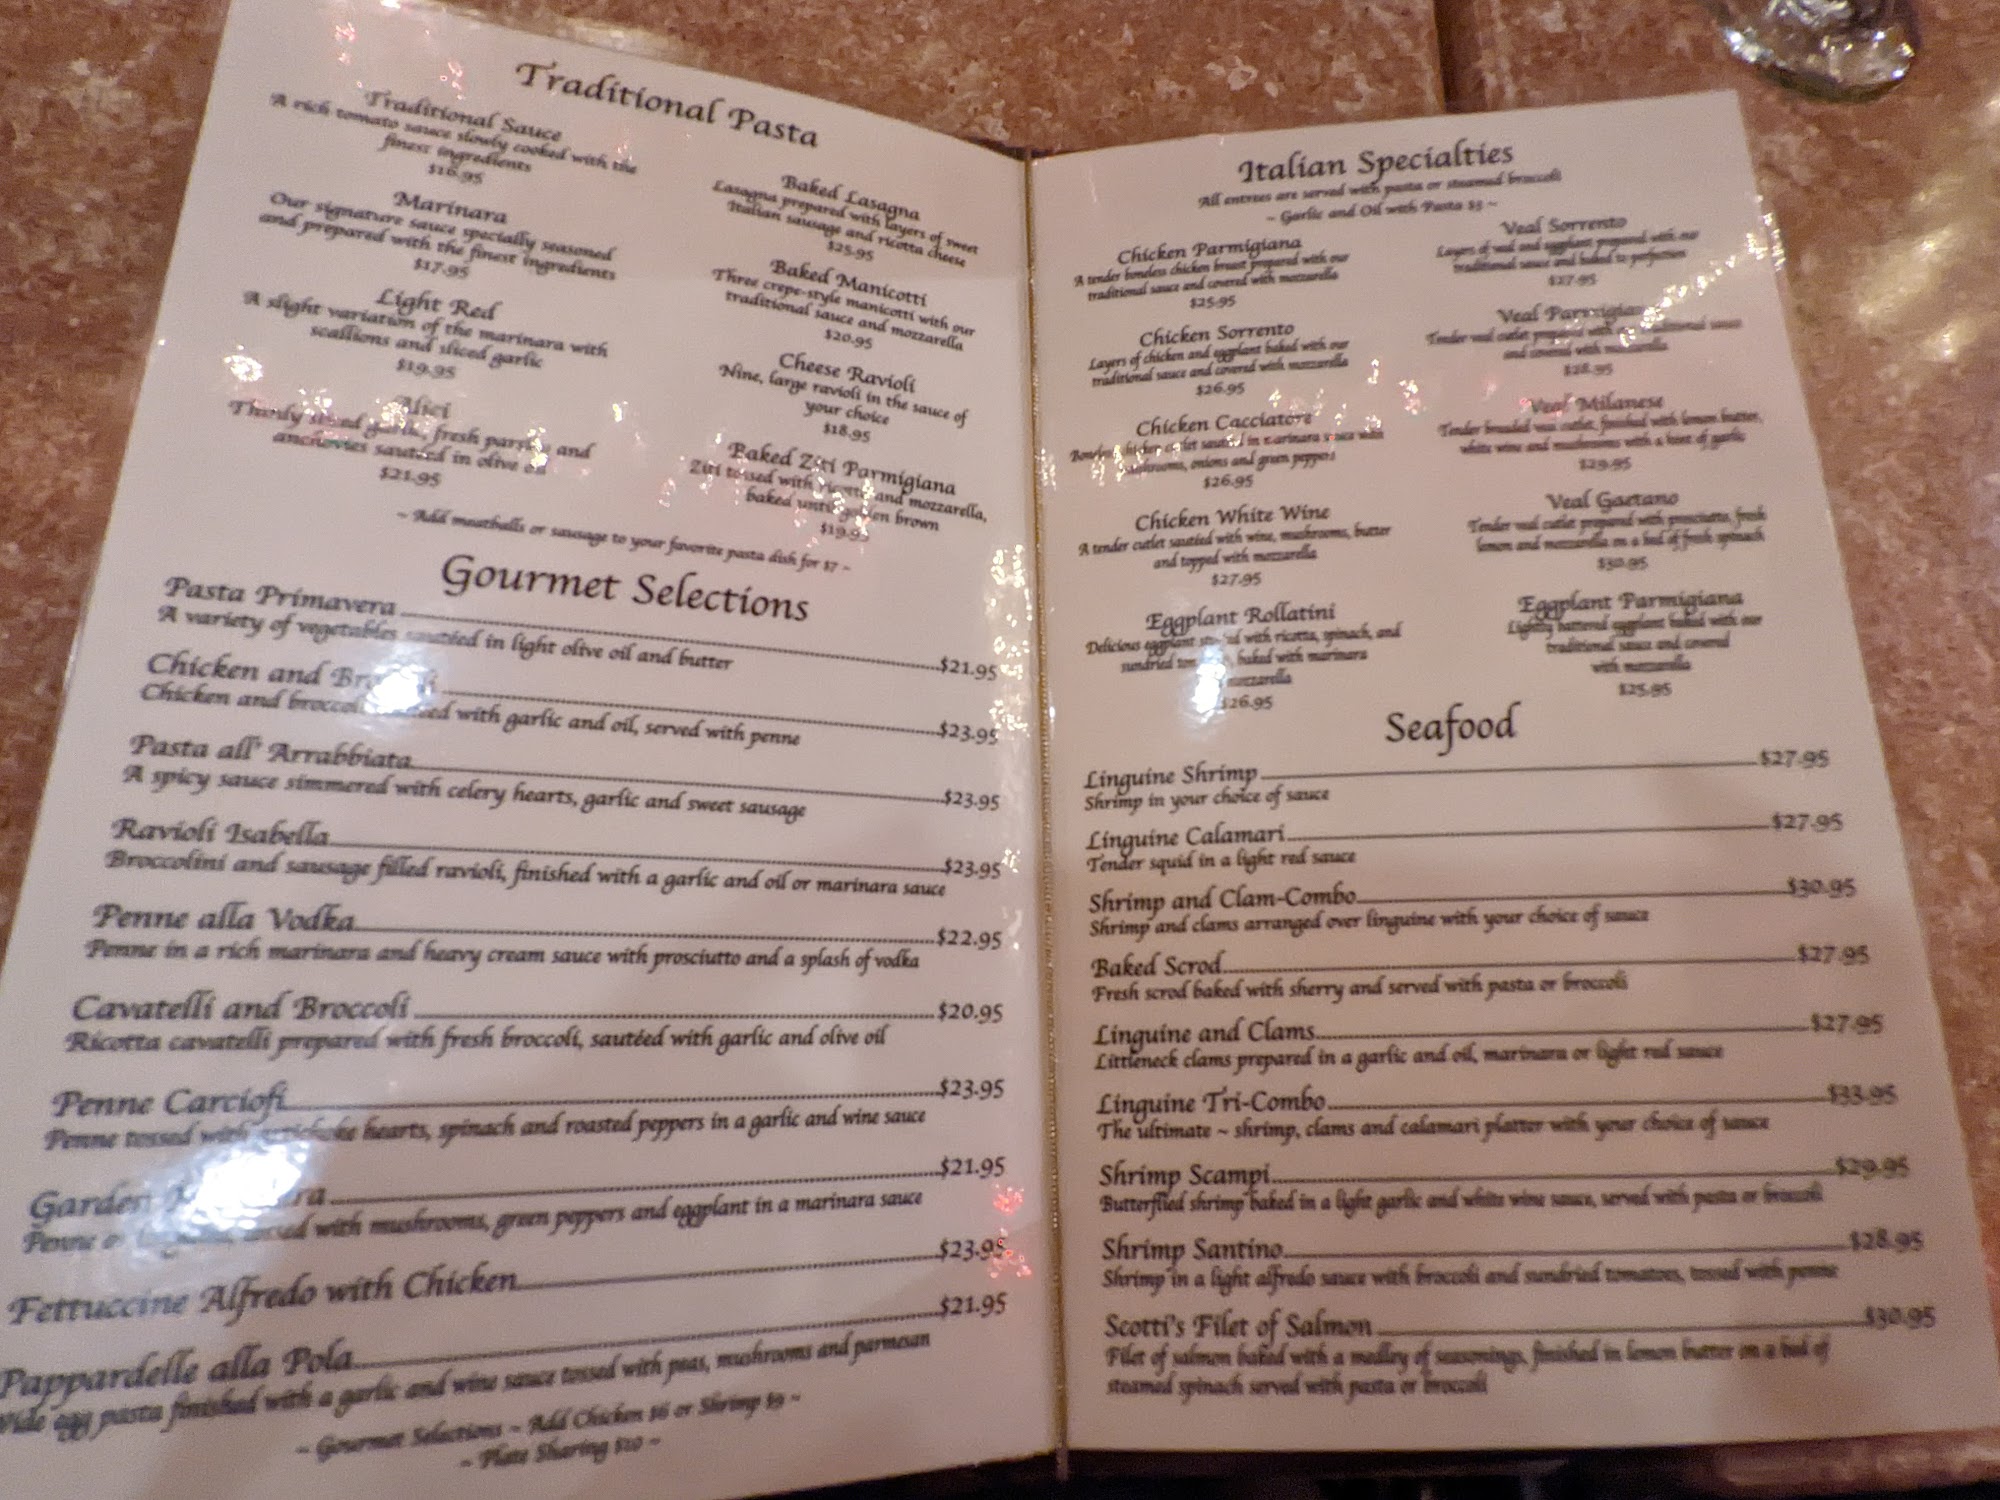 Traditional Pasta
Traditional Sauce
A rich tomato sauce slowly cooked with the
finest ingredients
$16.95
Marinara
Our signature sauce specially seasoned
and prepared with the finest ingredients
$17.95
Light Red
A slight variation of the marinara with
scallions and sliced garlic
$19.95
Alici
Thinly sliced garlic, fresh parsley and
anchovies sautéed in olive oil
$21.95
Baked Lasagna
Lasagna prepared with layers of sweet
Italian sausage and ricotta cheese
$25.95
Baked Manicotti
Three crepe-style manicotti with our
traditional sauce and mozzarella
$20.95
Cheese Ravioli
Nine, large ravioli in the sauce of
your choice
$18.95
Baked Ziti Parmigiana
Ziti tossed with ricotta and mozzarella,
baked until golden brown
$19.95
~ Add meatballs or sausage to your favorite pasta dish for $7 ~
Gourmet Selections
Pasta Primavera $21.95
A variety of vegetables sautéed in light olive oil and butter
Chicken and Broccoli $23.95
Chicken and broccoli sautéed with garlic and oil, served with penne
Pasta all' Arrabbiata $23.95
A spicy sauce simmered with celery hearts, garlic and sweet sausage
Ravioli Isabella $23.95
Broccolini and sausage filled ravioli, finished with a garlic and oil or marinara sauce
Penne alla Vodka $22.95
Penne in a rich marinara and heavy cream sauce with prosciutto and a splash of vodka
Cavatelli and Broccoli $20.95
Ricotta cavatelli prepared with fresh broccoli, sautéed with garlic and olive oil
Penne Carciofi $23.95
Penne tossed with artichoke hearts, spinach and roasted peppers in a garlic and wine sauce
Garden $21.95
Penne or tossed with mushrooms, green peppers and eggplant in a marinara sauce
Fettuccine Alfredo with Chicken $23.95
Pappardelle alla Pola $21.95
Wide egg pasta finished with a garlic and wine sauce tossed with peas, mushrooms and parmesan
~ Gourmet Selections ~ Add Chicken $6 or Shrimp $9 ~
~ Plate Sharing $10 ~
Italian Specialties
All entrees are served with pasta or steamed broccoli
~ Garlic and Oil with Pasta $3 ~
Chicken Parmigiana
A tender boneless chicken breast prepared with our
traditional sauce and covered with mozzarella
$25.95
Chicken Sorrento
Layers of chicken and eggplant baked with our
traditional sauce and covered with mozzarella
$26.95
Chicken Cacciatore
Boneless chicken cutlet sautéed in marinara sauce with
mushrooms, onions and green peppers
$26.95
Chicken White Wine
A tender cutlet sautéed with wine, mushrooms, butter
and topped with mozzarella
$27.95
Eggplant Rollatini
Delicious eggplant stuffed with ricotta, spinach, and
sundried tomatoes, baked with marinara
mozzarella
$26.95
Veal Sorrento
Layers of veal and eggplant prepared with our
traditional sauce and baked to perfection
$27.95
Veal Parmigiana
Tender veal cutlet prepared with our traditional sauce
and covered with mozzarella
$28.95
Veal Milanese
Tender breaded veal cutlet, finished with lemon butter,
white wine and mushrooms with a hint of garlic
$29.95
Veal Gaetano
Tender veal cutlet prepared with prosciutto, fresh
lemon and mozzarella on a bed of fresh spinach
$30.95
Eggplant Parmigiana
Lightly battered eggplant baked with our
traditional sauce and covered
with mozzarella
$25.95
Seafood
Linguine Shrimp $27.95
Shrimp in your choice of sauce
Linguine Calamari $27.95
Tender squid in a light red sauce
Shrimp and Clam-Combo $30.95
Shrimp and clams arranged over linguine with your choice of sauce
Baked Scrod $27.95
Fresh scrod baked with sherry and served with pasta or broccoli
Linguine and Clams $27.95
Littleneck clams prepared in a garlic and oil, marinara or light red sauce
Linguine Tri-Combo $33.95
The ultimate ~ shrimp, clams and calamari platter with your choice of sauce
Shrimp Scampi $29.95
Butterflied shrimp baked in a light garlic and white wine sauce, served with pasta or broccoli
Shrimp Santino $28.95
Shrimp in a light alfredo sauce with broccoli and sundried tomatoes, tossed with penne
Scotti's Filet of Salmon $30.95
Filet of salmon baked with a medley of seasonings, finished in lemon butter on a bed of
steamed spinach served with pasta or broccoli